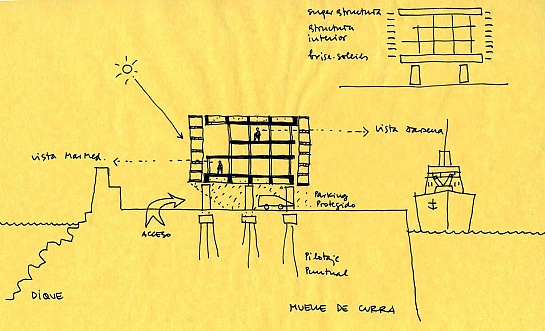 super structura
structura
interior
brise-soleils
vista darsena
vista Mar Med.
Parking
Protegido
ACCESO
Pilotaje
Puntual
DIQUE
MUELLE DE CURRA